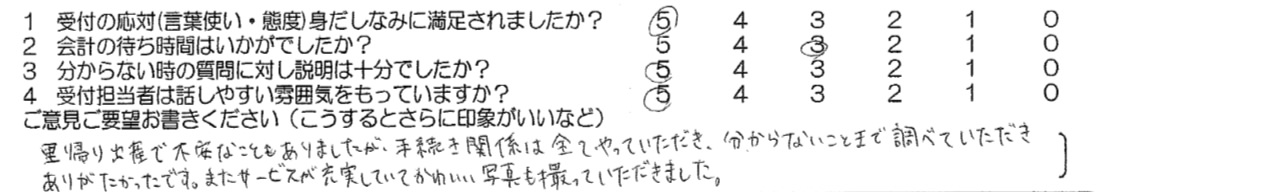 1 受付の応対(言葉使い・態度)身だしなみに満足されましたか? 5 4 3 2 1 0
2 会計の待ち時間はいかがでしたか? 5 4 3 2 1 0
3 分からない時の質問に対し説明は十分でしたか? 5 4 3 2 1 0
4 受付担当者は話しやすい雰囲気をもっていますか? 5 4 3 2 1 0
ご意見ご要望お書きください(こうするとさらに印象がいいなど)
里帰り出産で不安なこともありましたが、手続き関係は全てやっていただき、分からないことまで調べていただき
ありがたかったです。またサービスが充実していてかわいい写真も撮っていただきました。